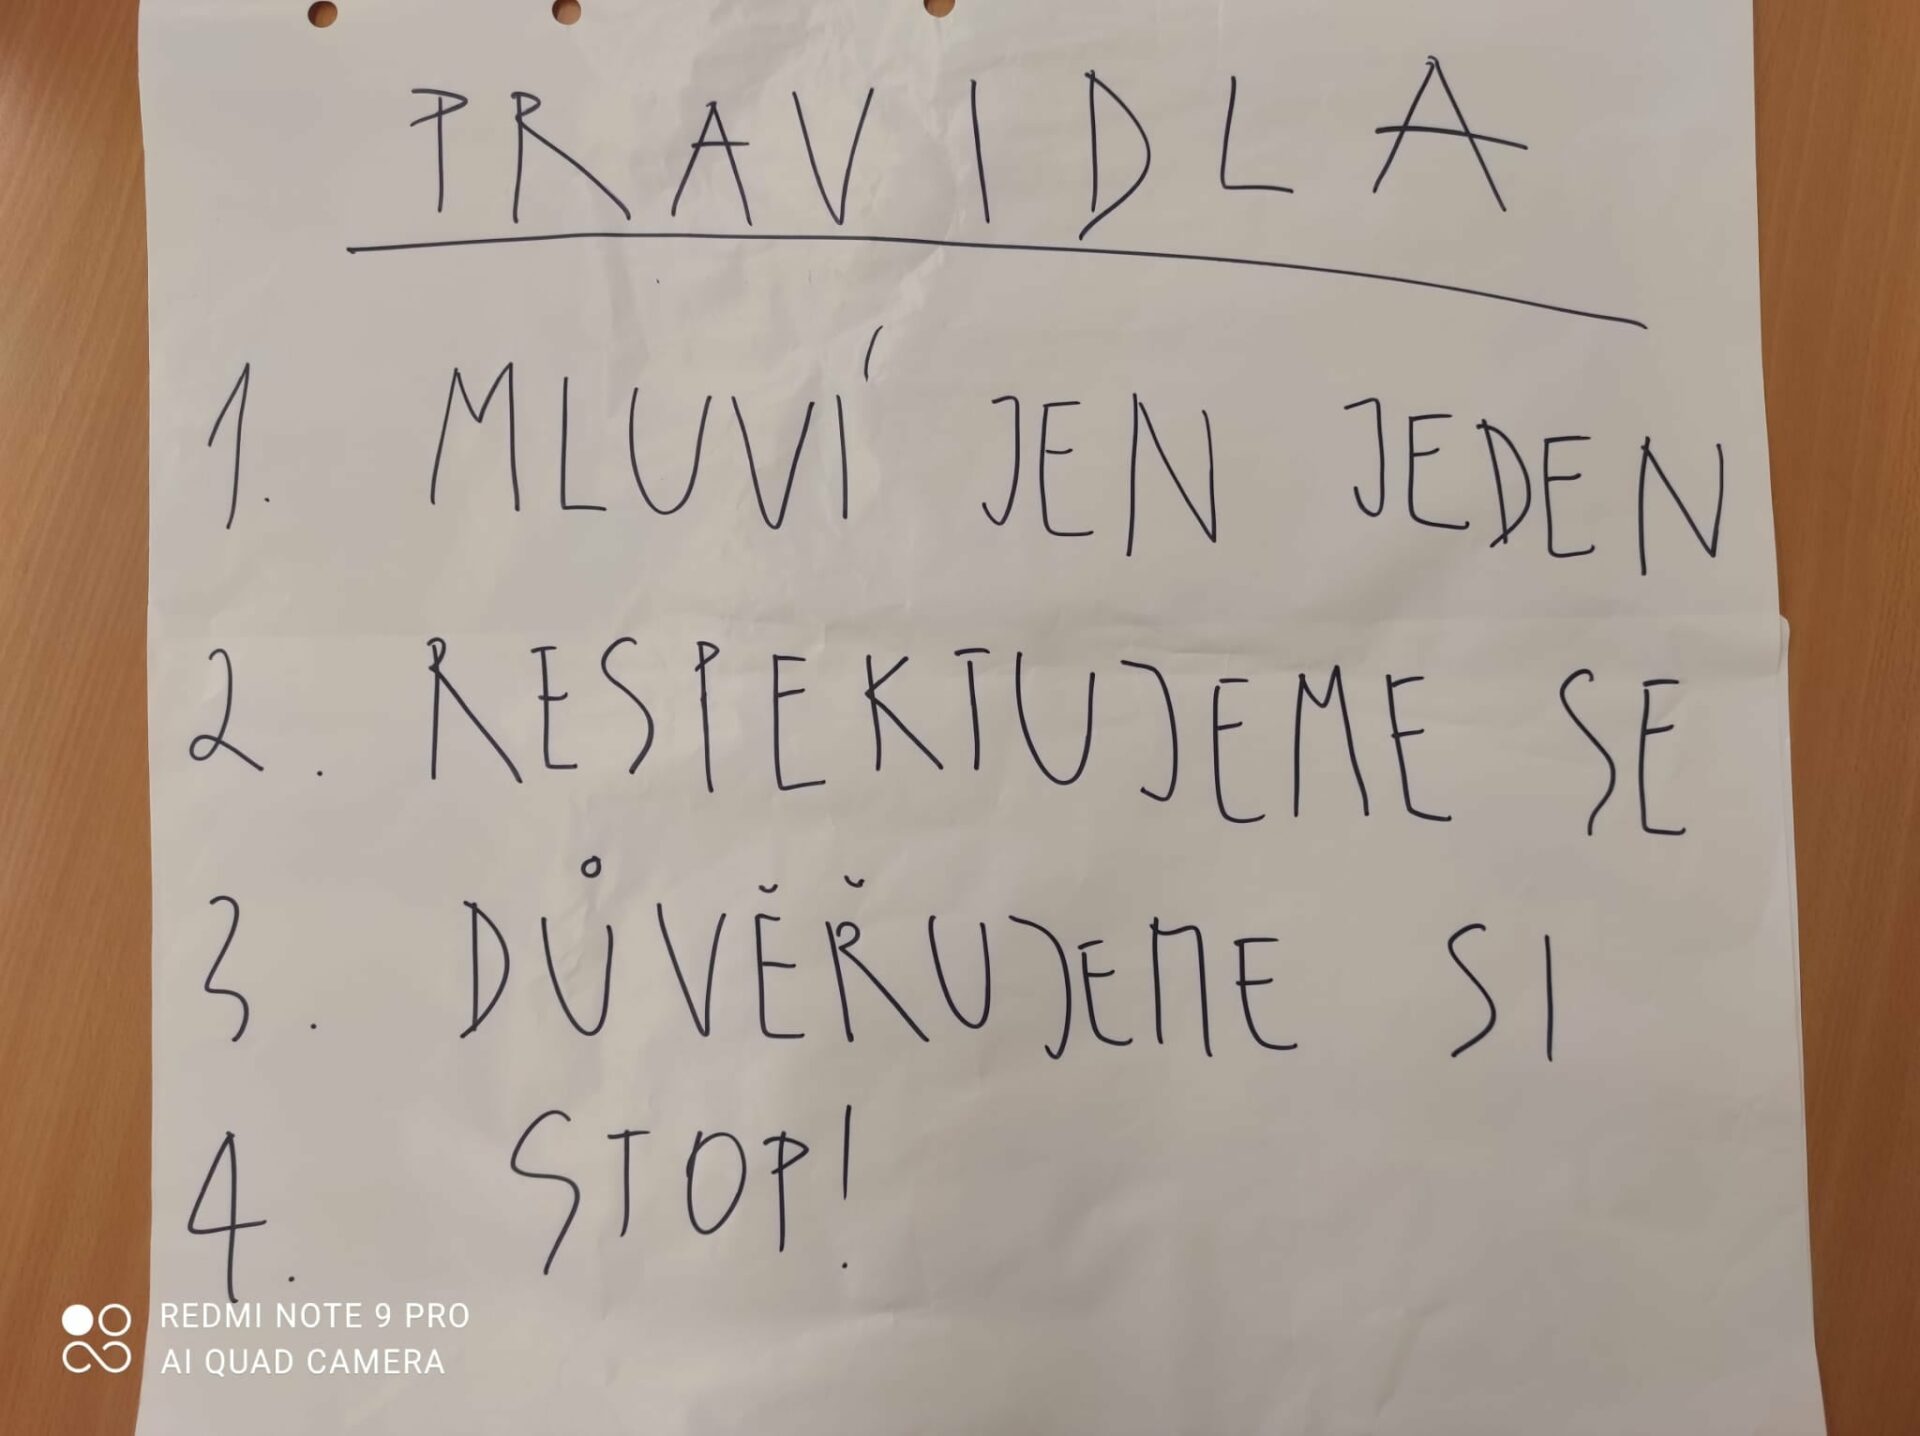 PRAVIDLA
1. MLUVÍ JEN JEDEN
2. RESPEKTUJEME SE
3. DŮVĚŘUJEME SI
4. STOP!
REDMI NOTE 9 PRO
AI QUAD CAMERA